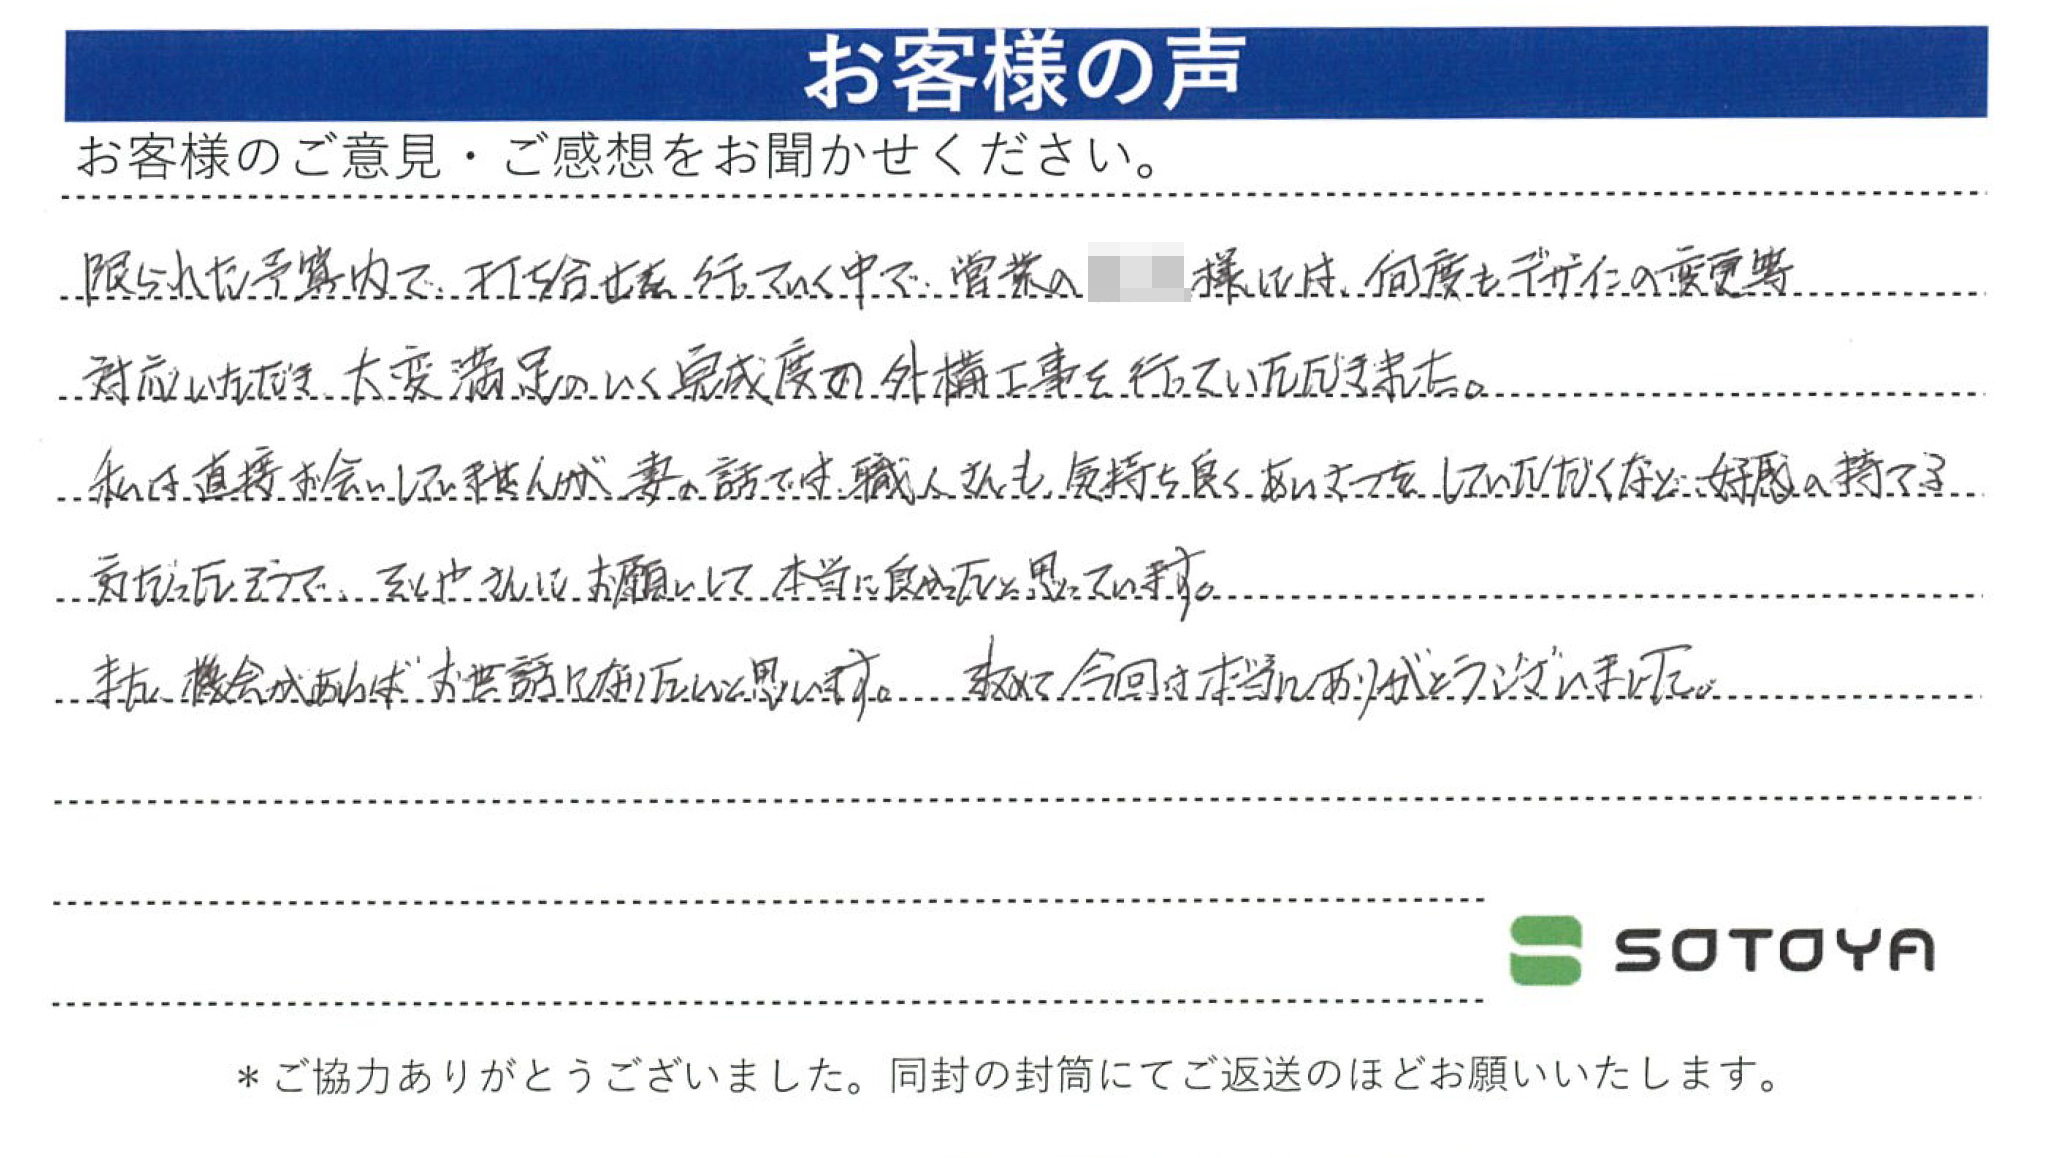 お客様の声
お客様のご意見・ご感想をお聞かせください。
限られた予算内で、打ち合せを行っていく中で、営業の 様には、何度もデザインの変更等
対応いただき、大変満足のいく完成度の外構工事を行っていただきました。
私は直接お会いしていませんが、妻の話では、職人さんも、気持ち良くあいさつをしていただくなど、好感の持てる
方だったそうで、そとやさんにお願いして本当に良かったと思っています。
また、機会があればお世話になりたいと思います。 改めて今回は本当にありがとうございました。
SOTOYA
＊ご協力ありがとうございました。同封の封筒にてご返送のほどお願いいたします。